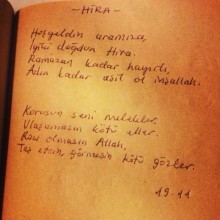 -HİRA-
Hoşgeldin aramıza,
İyiki doğdun Hira.
Ramazan kadar hayırlı,
Adın kadar asil ol inşallah.
Korusun seni melekler.
Ulaşamasın kötü eller.
Razı olmasın Allah,
Taş etsin, görmesin kötü gözler.